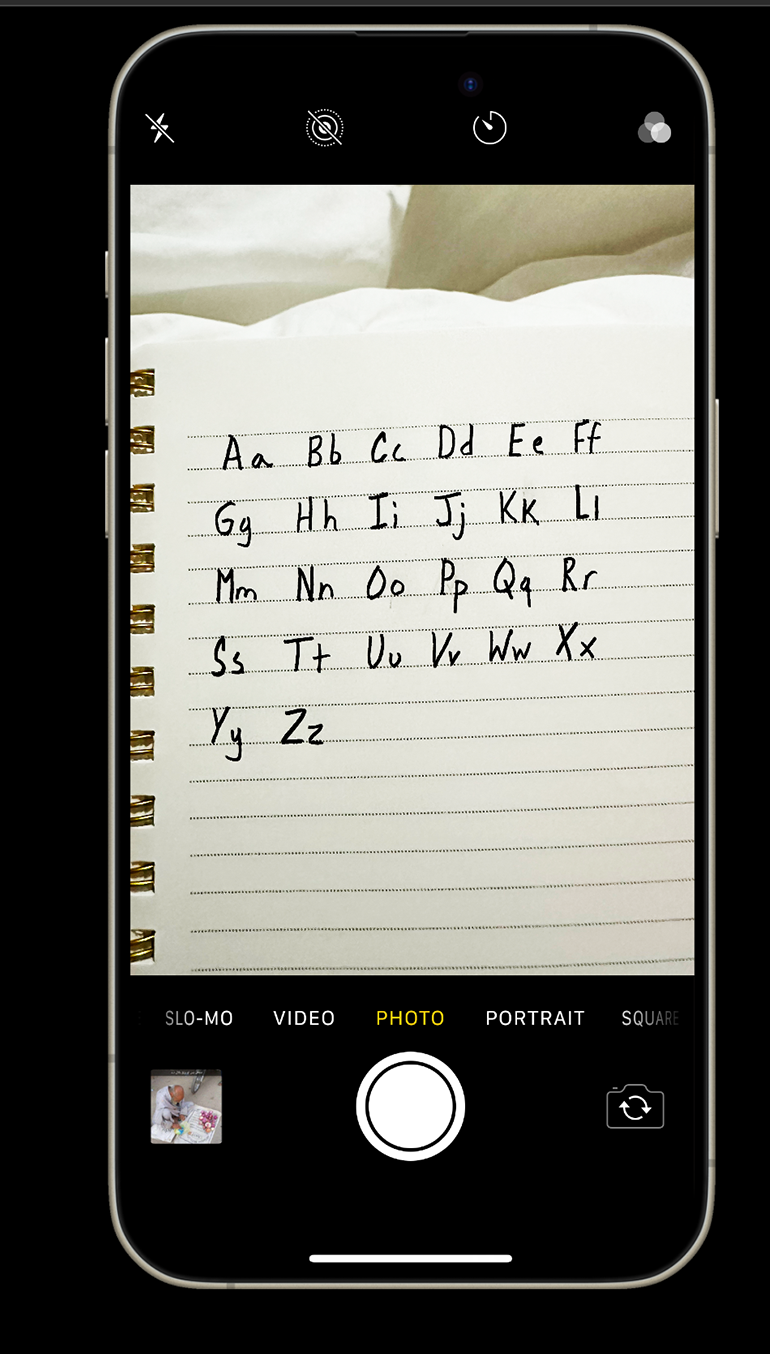 Aa Bb Cc Dd Ee Ff
Gg Hh Ii Jj Kk Ll
Mm Nn Oo Pp Qq Rr
Ss Tt Uu Vv Ww Xx
Yy Zz
SLO-MO VIDEO PHOTO PORTRAIT SQUARE